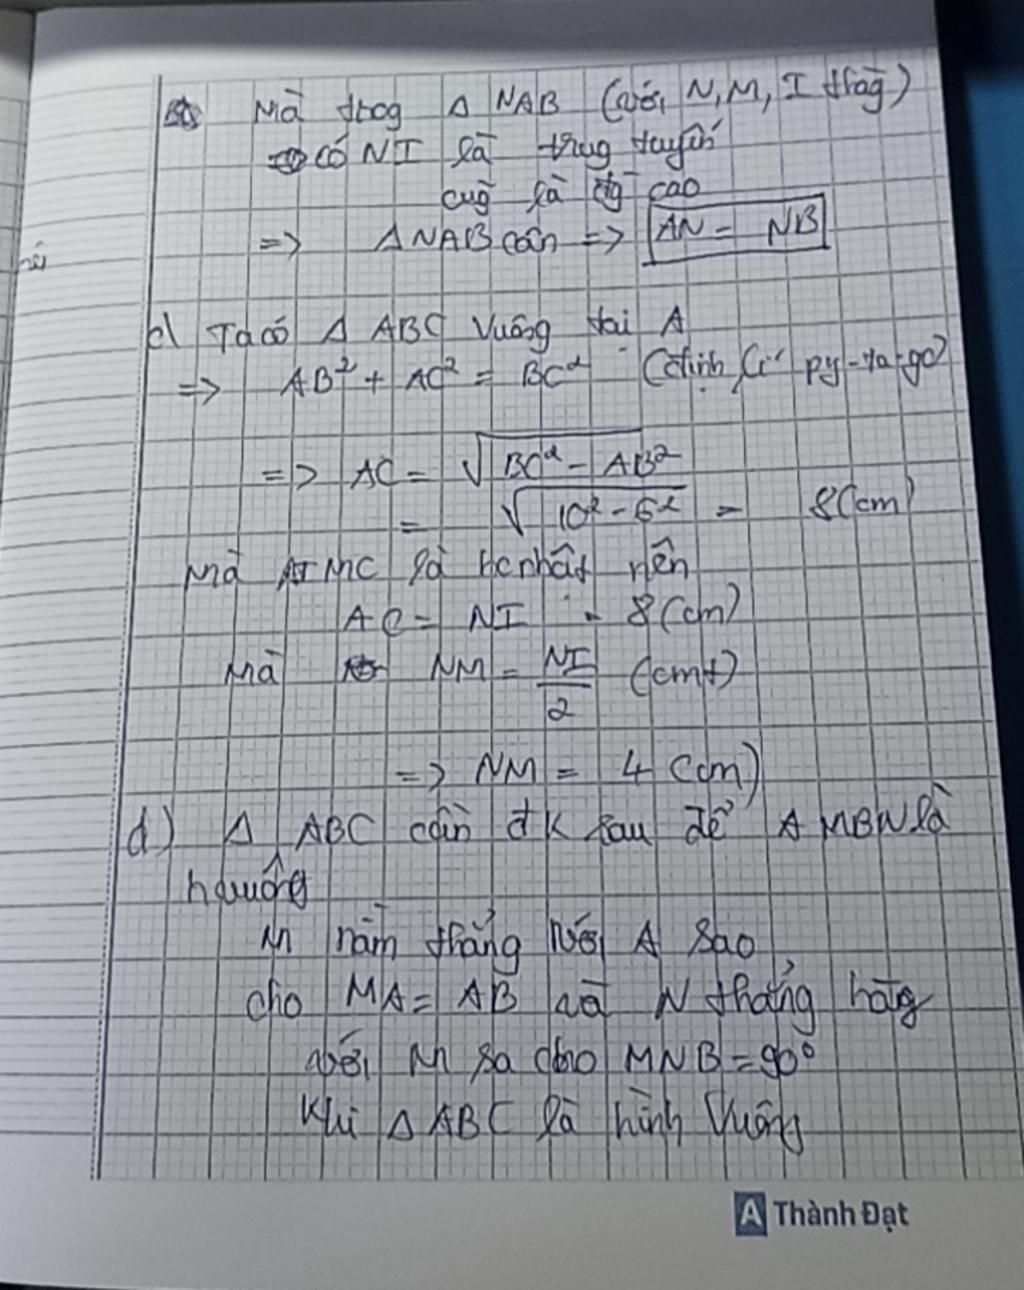 Mà trog Δ NAB (với N,M,I thăg)
có NI là trug tuyến
cug là đg cao
=> Δ NAB cân => AN = NB
c) Ta có Δ ABC vuông tại A
=> AB² + AC² = BC² (định lí py-ta-go)
=> AC = √BC² - AB²
= √10² - 6² = 8(cm)
Mà AIMC là hcnhât nên
AC = NI = 8(cm)
Mà NM = NI/2 (cmt)
=> NM = 4 (cm)
d) Δ ABC cần đk sau để AMBN là
hvuông
M nằm thẳng với A sao
cho MA = AB và N thẳng hàg
với M sa cho MNB = 90°
Khi Δ ABC là hình vuông
A Thành Đạt